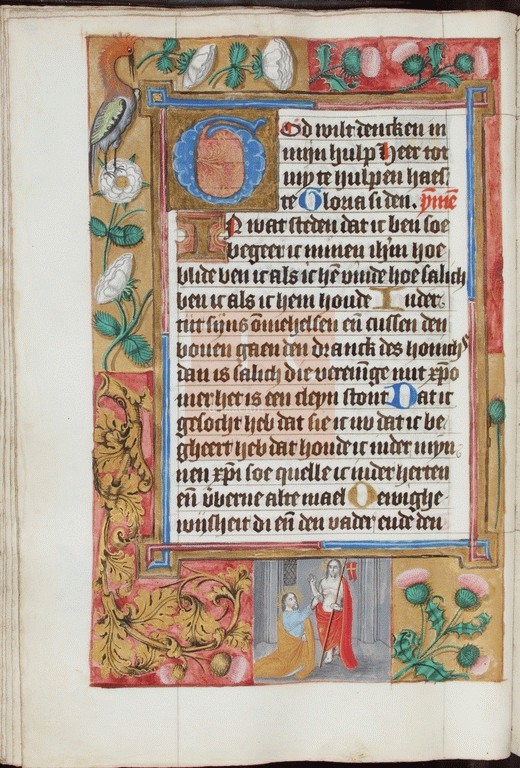 God wilt dencken in
myn hulp Heer tot
my te hulpen haes
te Gloria si den. ymne
In wat steden dat ic ben soe
begeer ic minen ihm hoe
blide ben ic als ic hē vinde hoe salich
ben ic als ic hem houde In der
tijt sijns ōmehelsen eñ cussen den
bouen gaen den dranck des honichs
dan is salich die vereinige mit xpo
mer het is een cleyn stont Dat ic
gesocht heb dat sie ic nv dat ic be
gheert heb dat houde ic inder myn
nen xpi soe quelle ic inder herten
eñ v̄berne alte mael O ewighe
wijsheit di eñ den vader ende den